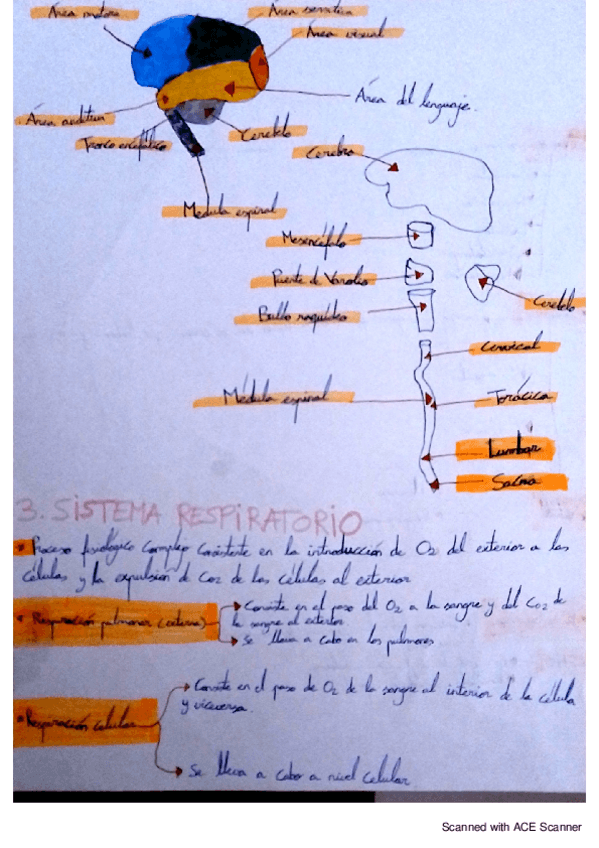 Área motora
Área sensitiva
Área visual
Área del lenguaje.
Área auditiva
Cerebelo
Tronco encefálico
Cerebro
Médula espinal
Mesencéfalo
Puente de Varolio
Cerebelo
Bulbo raquídeo
Cervical
Médula espinal
Torácica
Lumbar
Sacra
3. SISTEMA RESPIRATORIO
Proceso fisiológico complejo consistente en la introducción de O2 del exterior a las
células y la expulsión de CO2 de las células al exterior
Respiración pulmonar (externa)
Consiste en el paso del O2 a la sangre y del CO2 de
la sangre al exterior.
Se lleva a cabo en los pulmones
Consiste en el paso de O2 de la sangre al interior de la célula
y viceversa.
Respiración celular
Se lleva a cabo a nivel celular
Scanned with ACE Scanner